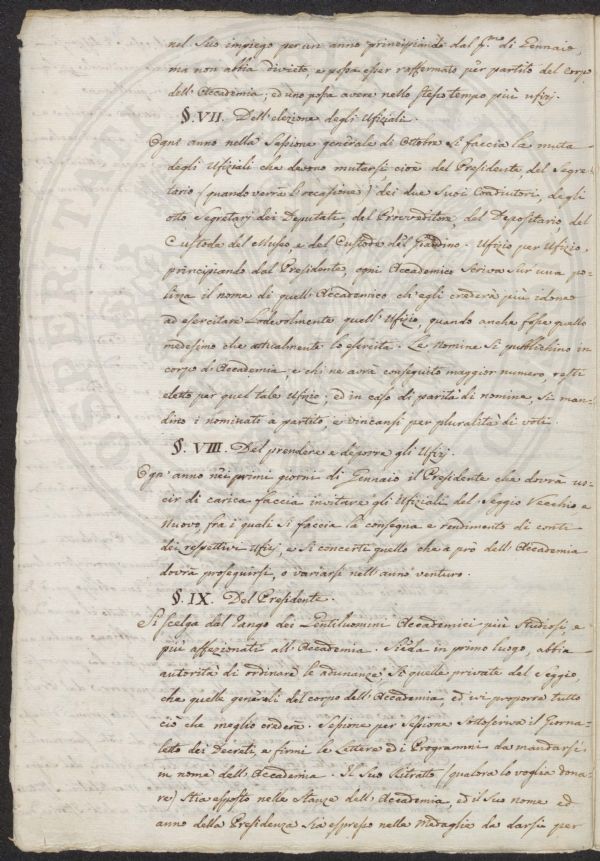 nel suo impiego per un anno principiando dal p.mo di Gennaio,
ma non abbia divieto, e possa esser raffermato per partito del Corpo
dell'Accademia; ed uno possa avere nello stesso tempo più ufizj.
§. VII. Dell'elezione degli Ufiziali.
Ogni anno nella Sessione generale di Ottobre si faccia la muta
degli Ufiziali che devono mutarsi cioè del Presidente, del Segre-
tario (quando verrà l'occasione) dei due suoi Coadiutori, degli
otto Segretarj dei Deputati, del Provveditore, del Depositario, del
Custode del Museo, e del Custode del Giardino. Ufizio per Ufizio,
principiando dal Presidente, ogni Accademico scriva sur una po-
liza il nome di quell'Accademico ch'egli crederà più idoneo
ad esercitare lodevolmente quell'Ufizio, quando anche fosse quello
medesimo che attualmente lo esercita. Le nomine si pubblichino in
corpo di Accademia e chi ne avrà conseguito maggior numero, resti
eletto per quel tale Ufizio; ed in caso di parità di nomina, si man-
dino i nominati a partito e vincansi per pluralità di voti.
§. VIII. Del prendere e deporre gli Ufizj.
Ogn'anno nei primi giorni di Gennaio il Presidente che dovrà us-
cir di carica faccia invitare gli Ufiziali del Seggio Vecchio, e
nuovo, fra i quali si faccia la consegna e rendimento di conti
dei respettivi Ufizj, e si concerti quello che a prò dell'Accademia
dovrà proseguirsi, o variarsi nell'anno venturo.
§. IX. Del Presidente.
Si scelga dal rango dei Gentiluomini Accademici più studiosi, e
più affezionati all'Accademia. Sieda in primo luogo, abbia
autorità di ordinare le adunanze, sì quelle private del Seggio,
che quelle generali del corpo dell'Accademia, ed ivi proporre tutto
ciò che meglio crederà. Sessione per Sessione sottoscriva il Giorna-
letto dei Decreti, e firmi le Lettere ed i Programmi da mandarsi
in nome dell'Accademia. Il suo Ritratto (qualora lo voglia dona-
re) stia esposto nelle Stanze dell'Accademia, ed il suo nome ed
anno della Presidenza sia espresso nelle Medaglie da darsi per